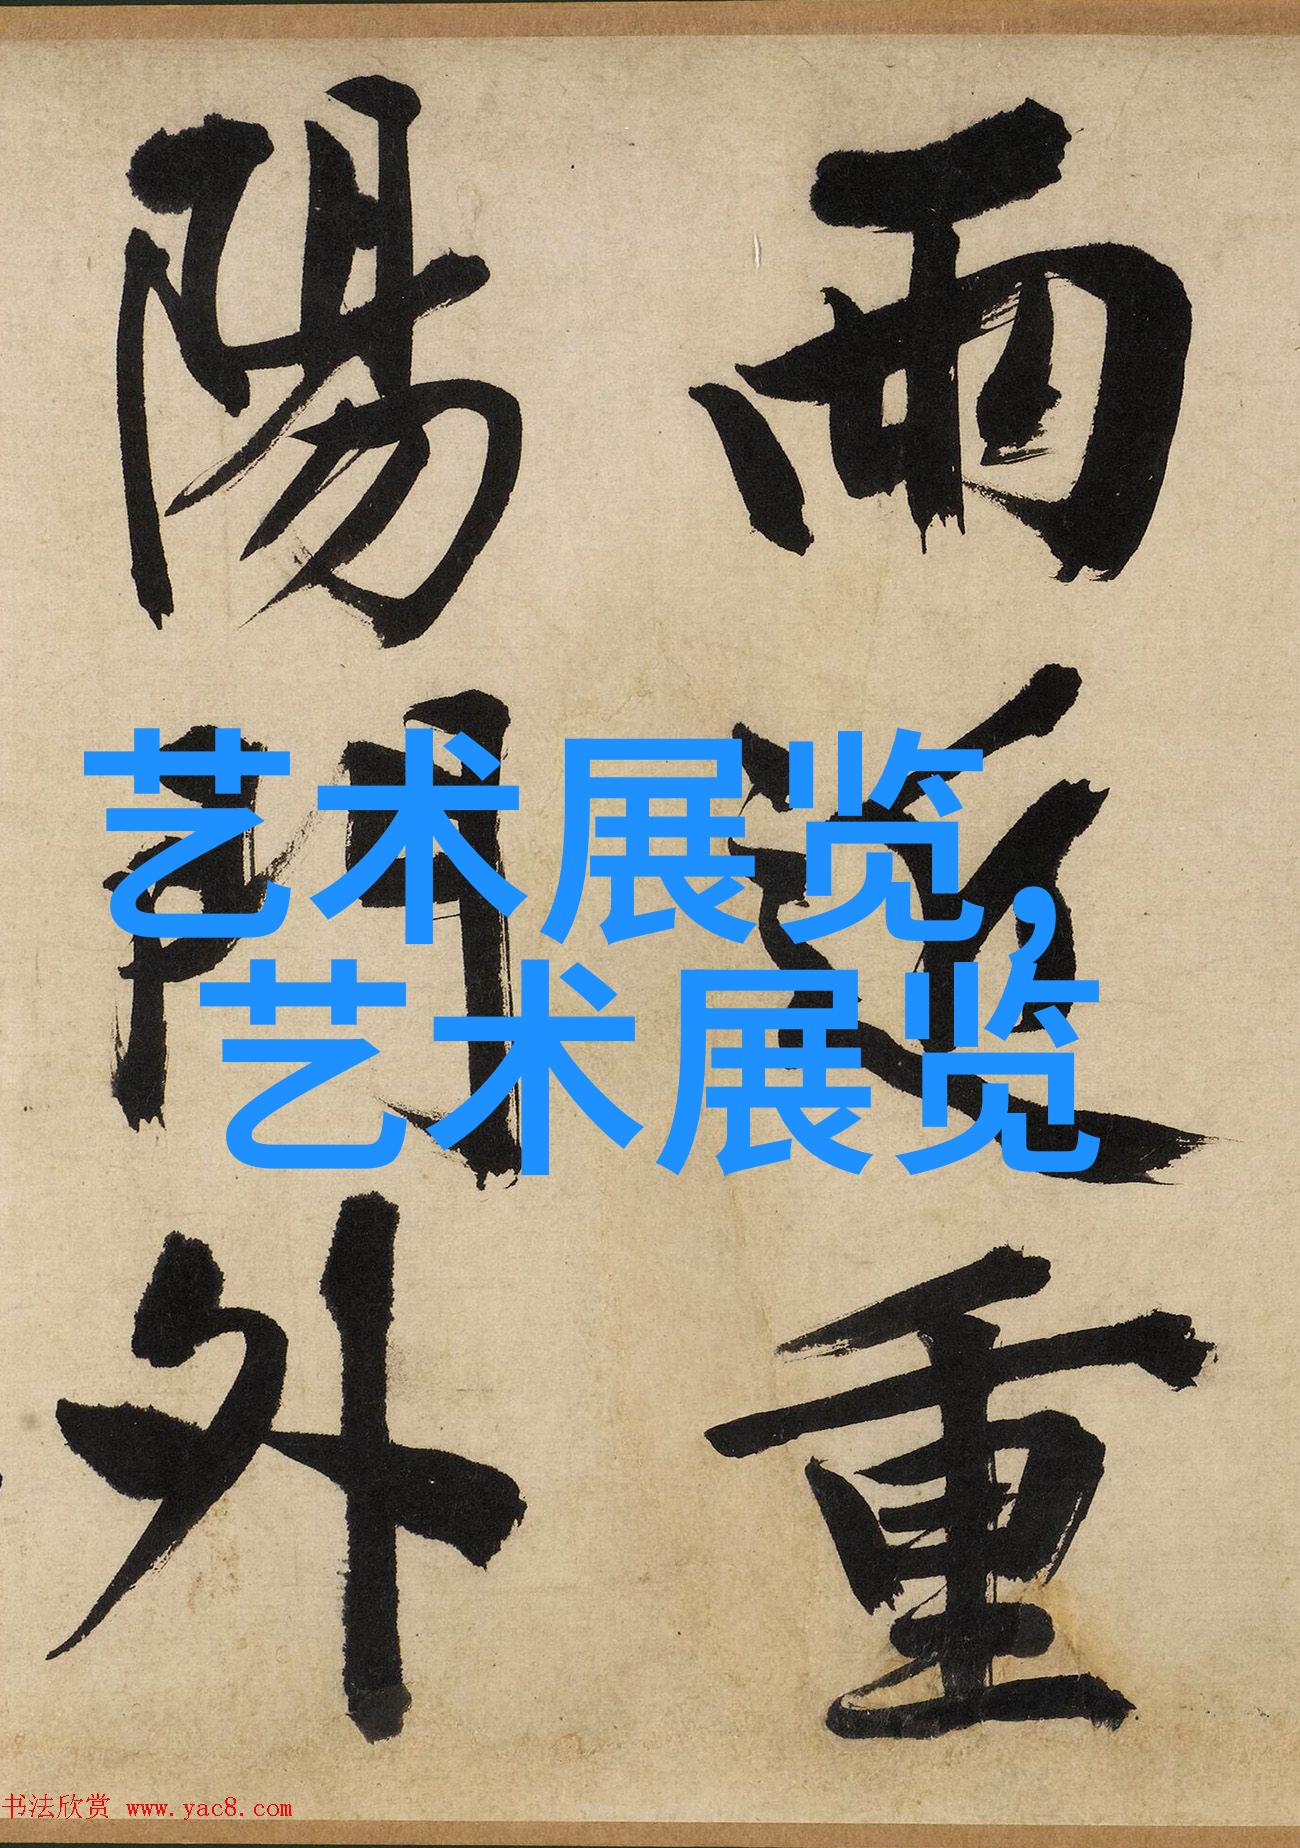 雨近重
陽門外
艺术展览，
艺术展览
书法欣赏 www.yac8.com